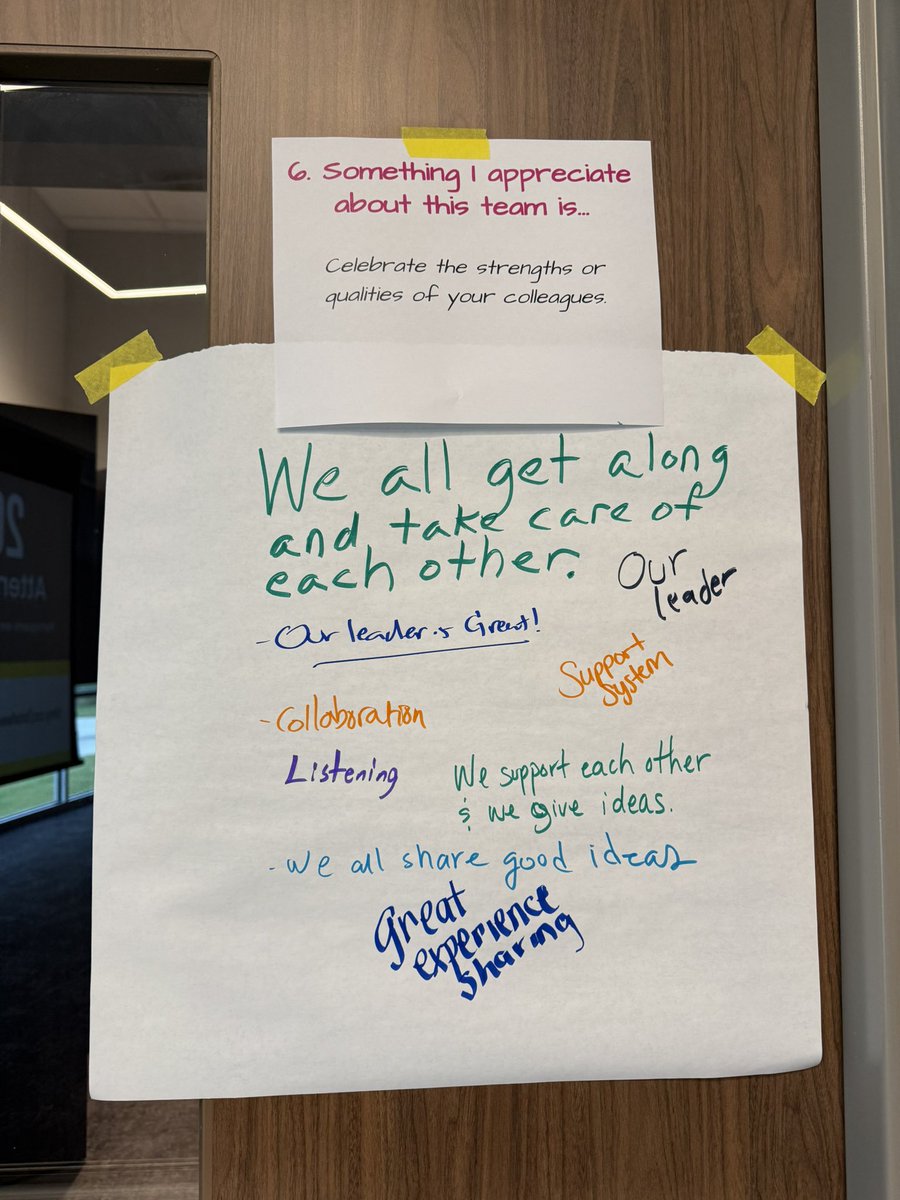 6. Something I appreciate
about this team is...
Celebrate the strengths or
qualities of your colleagues.
We all get along
and take care of
each other.
Our
leader
- Our leader is Great!
Support
System
- Collaboration
Listening
We support each other
& we give ideas.
- we all share good ideas
Great
experience
sharing
20
Atten